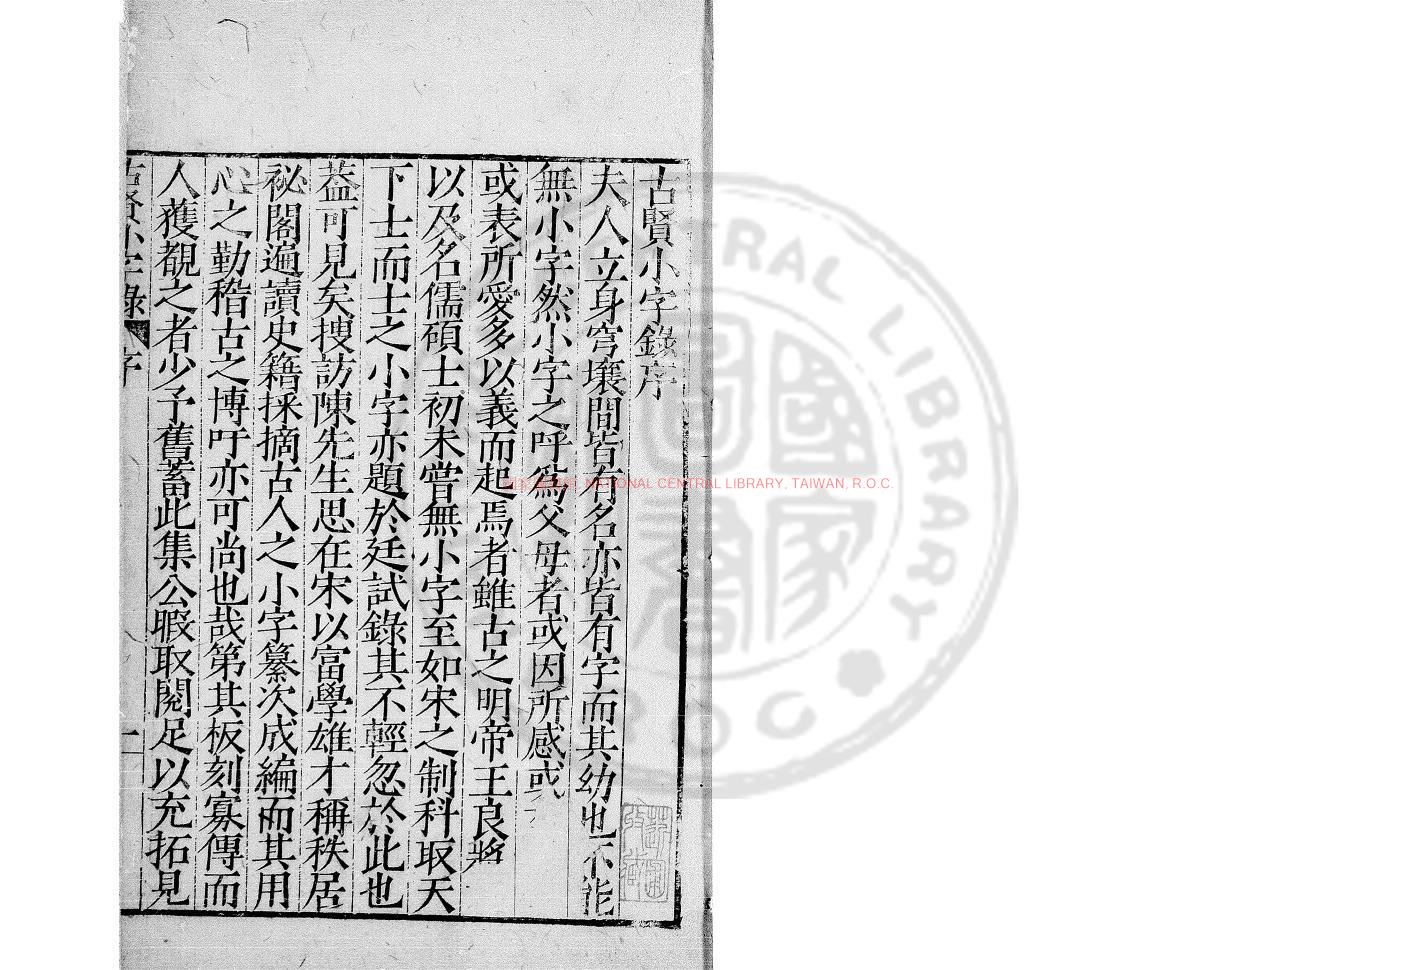 古賢小字錄序
夫人立身穹壤間皆有名亦皆有字而其幼也不能
無小字然小字之呼爲父母者或因所感或
或表所愛多以義而起焉者雖古之明帝王良將
以及名儒碩士初未嘗無小字至如宋之制科取天
下士而士之小字亦題於廷試錄其不輕忽於此也
葢可見矣搜訪陳先生思在宋以富學雄才稱秩居
祕閣遍讀史籍採摘古人之小字纂次成編而其用
心之勤稽古之博吁亦可尚也哉第其板刻寡傳而
人獲覩之者少予舊蓄此集公暇取閱足以充拓見
古賢小字錄 序 一
NATIONAL CENTRAL LIBRARY, TAIWAN, R.O.C.
CENTRAL LIBRARY
ROC
國家圖書